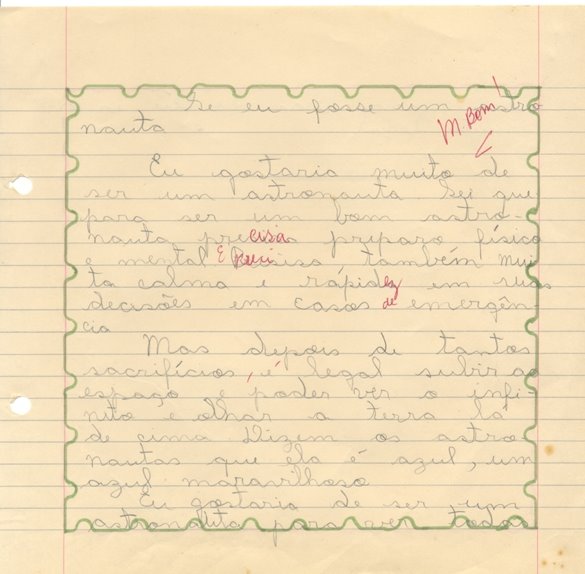 Se eu fosse um astro
nauta
M. Bom!
Eu gostaria muito de
ser um astronauta Sei que
para ser um bom astro-
nauta precisa preparo físico
e mental E Precisa também mui
ta calma e rápidez em suas
decisões em casos de emergên
cia
Mas depois de tantos
sacrifícios, é legal subir ao
espaço e poder ver o infi
nito e olhar a terra lá
de cima Dizem os astro
nautas que ela é azul, um
azul maravilhoso
Eu gostaria de ser um
astronauta para ver todos